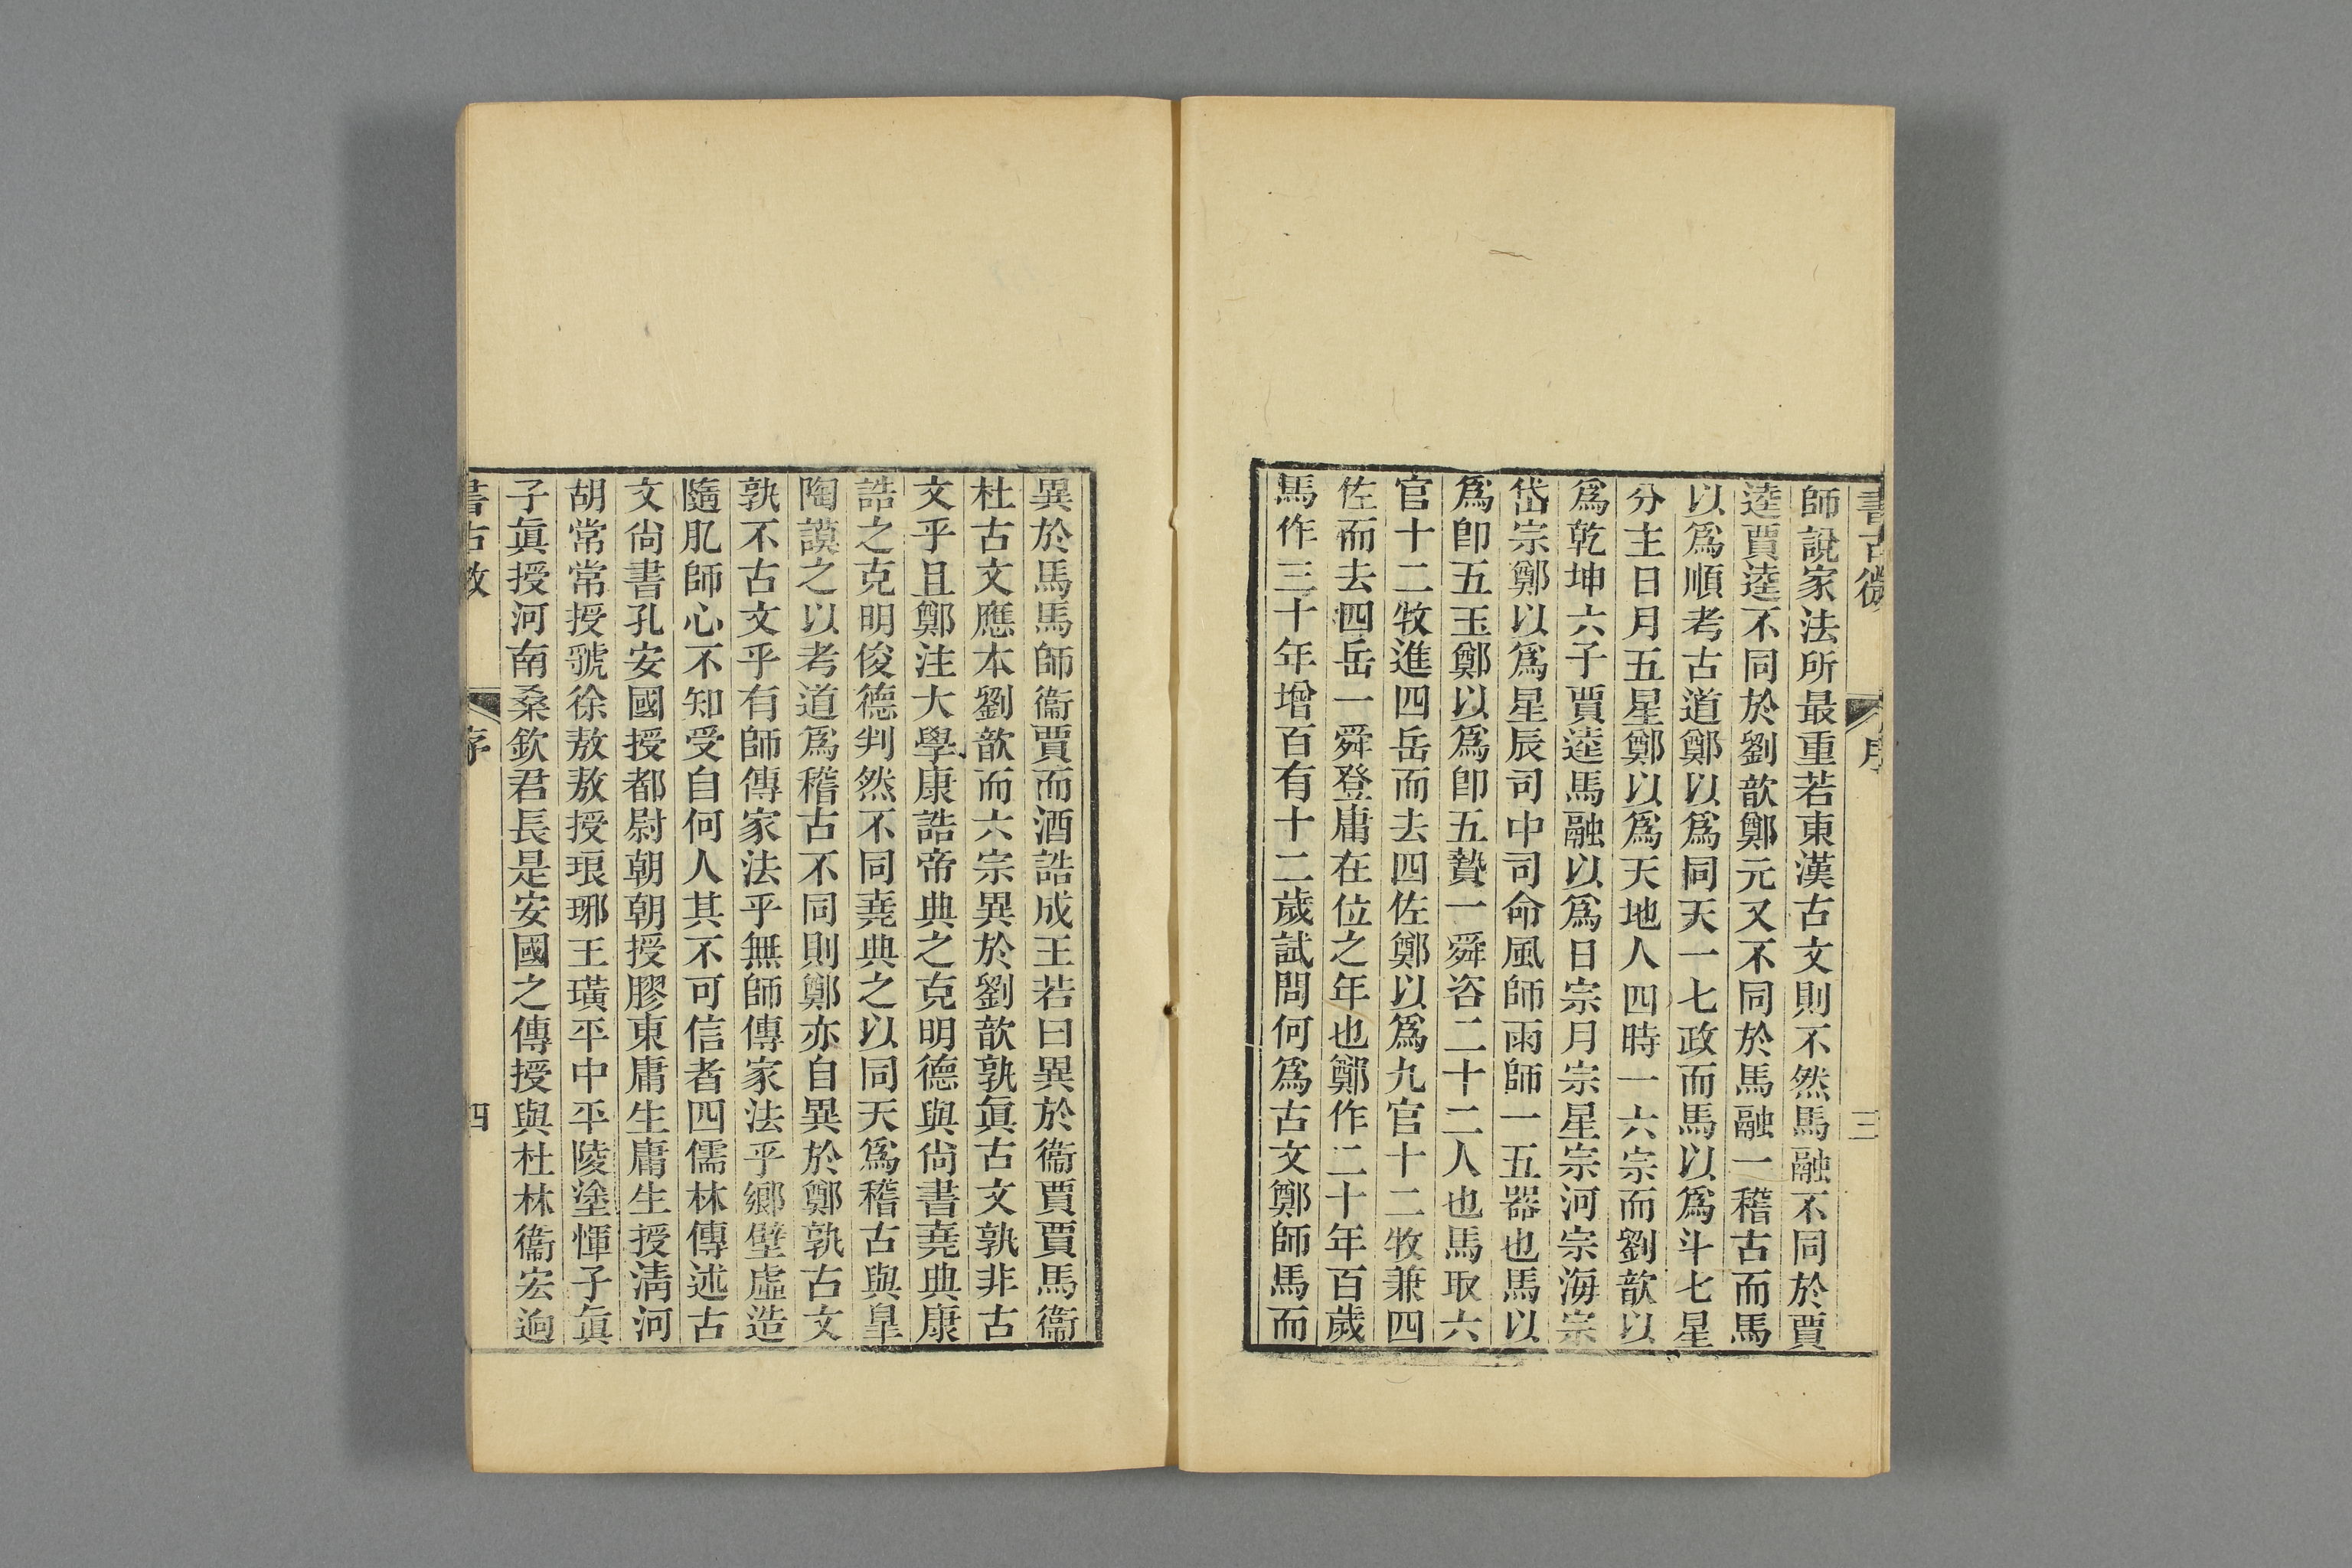 書古微 序 三
師說家法所最重若東漢古文則不然馬融不同於賈
逵賈逵不同於劉歆鄭元又不同於馬融一稽古而馬
以爲順考古道鄭以爲同天一七政而馬以爲斗七星
分主日月五星鄭以爲天地人四時一六宗而劉歆以
爲乾坤六子賈逵馬融以爲日宗月宗星宗河宗海宗
岱宗鄭以爲星辰司中司命風師雨師一五器也馬以
爲卽五玉鄭以爲卽五贄一舜咨二十二人也馬取六
官十二牧進四岳而去四佐鄭以爲九官十二牧兼四
佐而去四岳一舜登庸在位之年也鄭作二十年百歲
馬作三十年增百有十二歲試問何爲古文鄭師馬而
異於馬馬師衞賈而酒誥成王若曰異於衞賈賈馬衞
杜古文應本劉歆而六宗異於劉歆孰眞古文孰非古
文乎且鄭注大學康誥帝典之克明德與尙書堯典康
誥之克明俊德判然不同堯典之以同天爲稽古與臯
陶謨之以考道爲稽古不同則鄭亦自異於鄭孰古文
孰不古文乎有師傳家法乎無師傳家法乎鄉壁虛造
隨肊師心不知受自何人其不可信者四儒林傳述古
文尙書孔安國授都尉朝朝授膠東庸生庸生授淸河
胡常常授虢徐敖敖授琅琊王璜平中平陵塗惲子眞
子眞授河南桑欽君長是安國之傳授與杜林衞宏逈
書古微 序 四